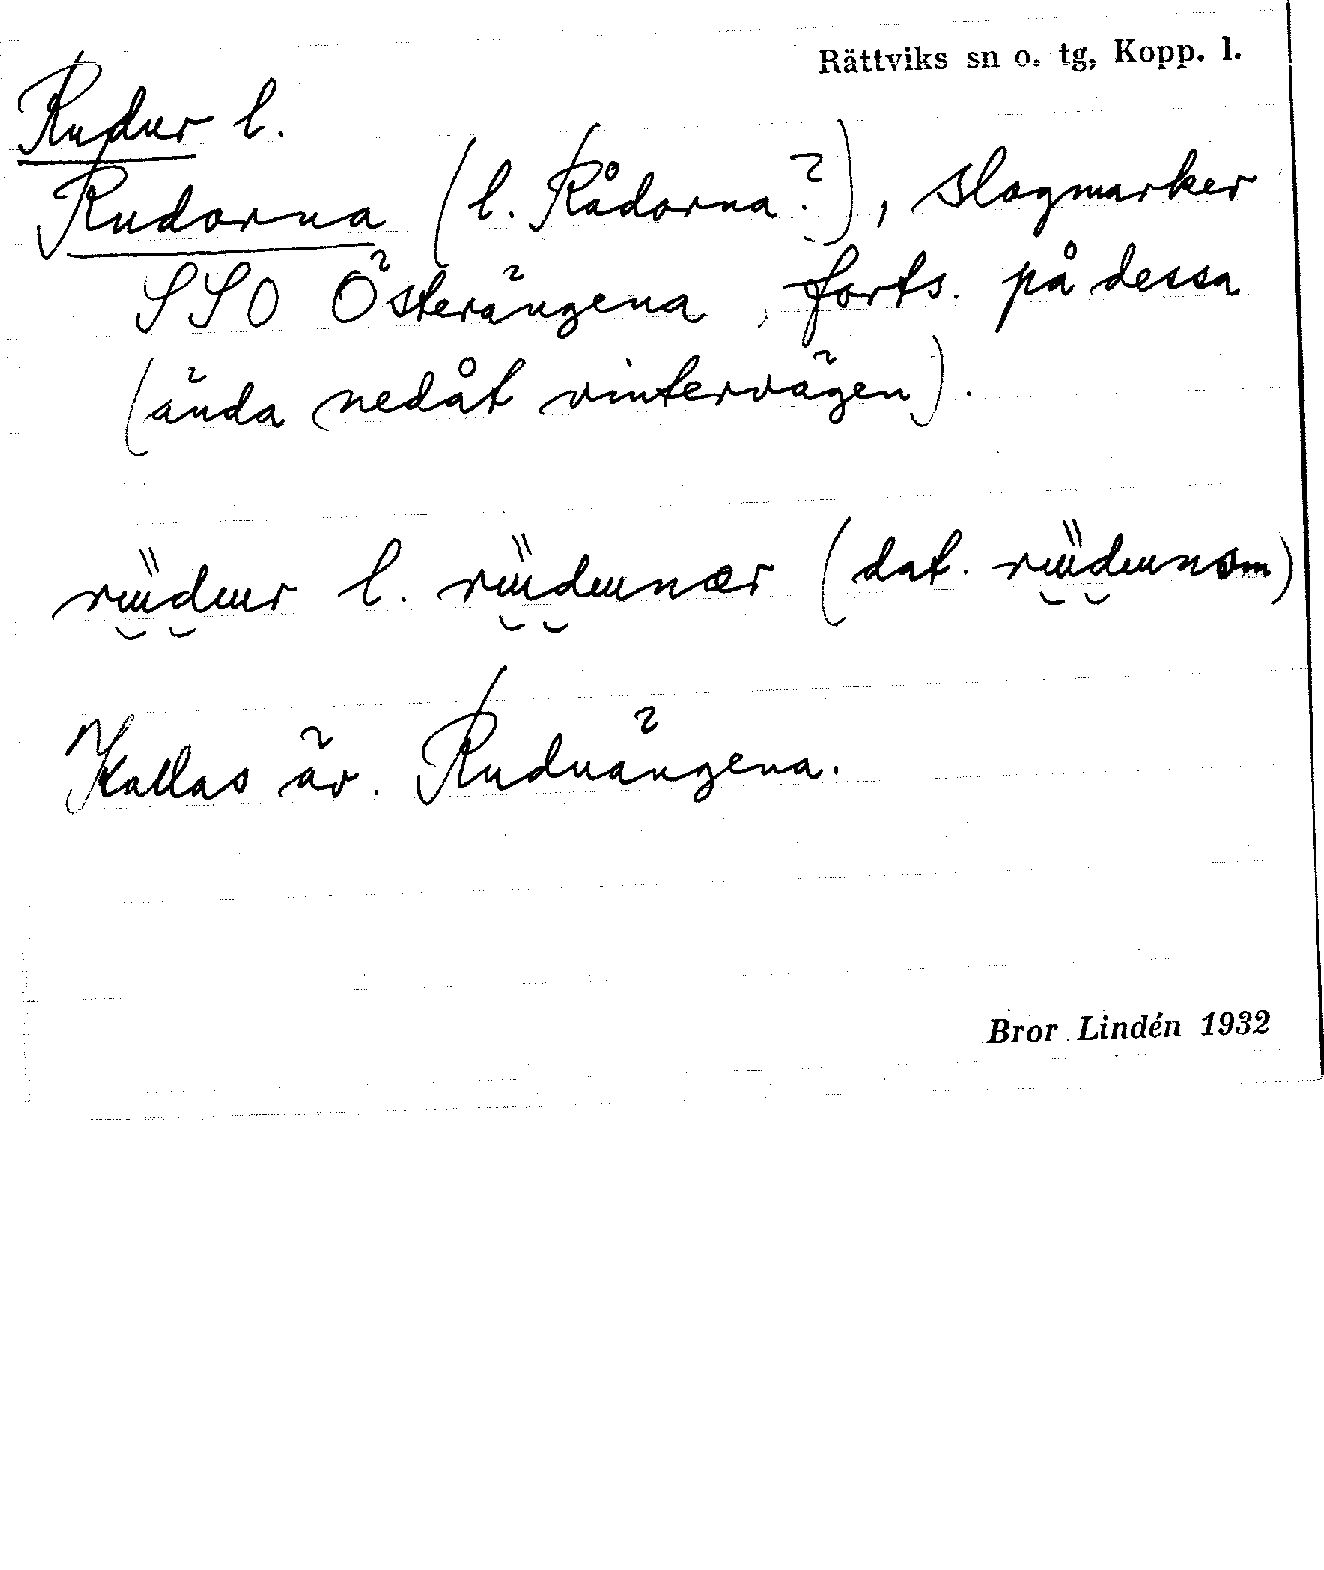 Rättviks sn o. tg, Kopp. l.
Rudur l.
Rudorna (l. Rådorna?), slogmarker
SSO Österängena, forts. på dessa
(ända nedåt vintervägen).
l. (dat.
Kallas äv. Ruduängena.
Bror Lindén 1932